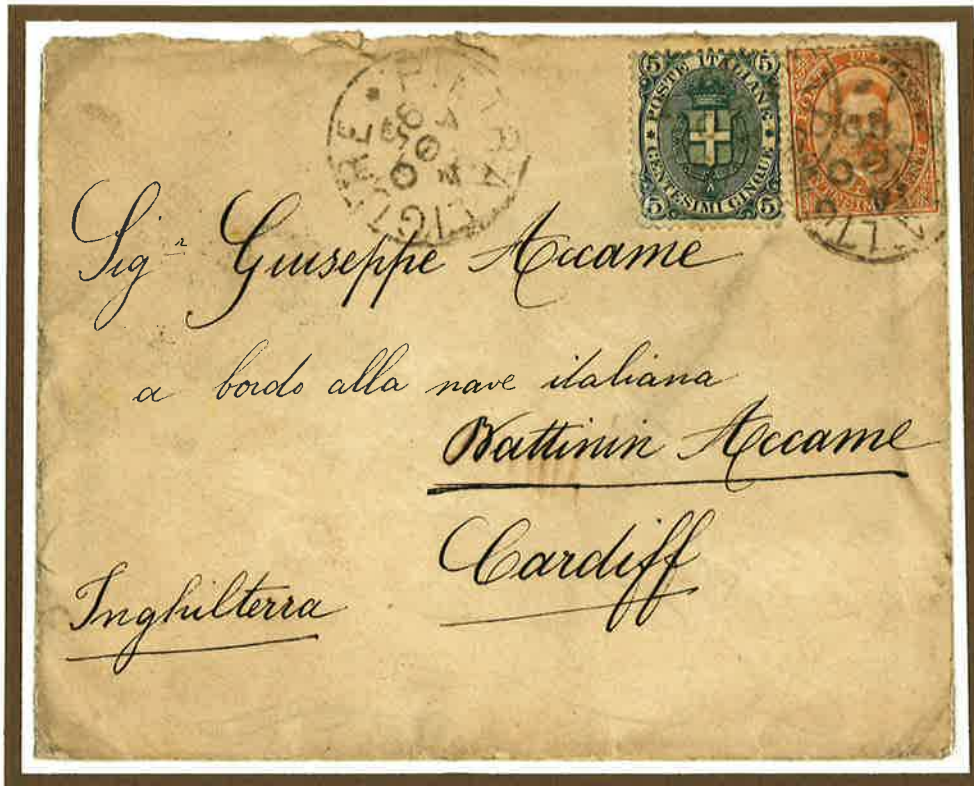 PIETRA LIGURE
POSTE ITALIANE
5 5
CENTESIMI CINQUE
5 5
Sigr Giuseppe Accame
a bordo alla nave italiana
Battinin Accame
Cardiff
Inghilterra